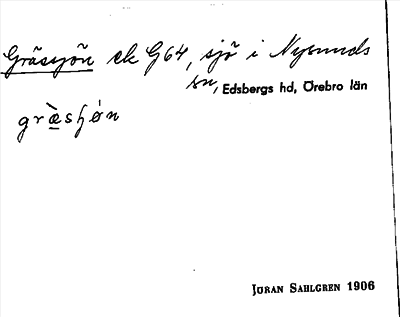 Gräsjön ek G64, sjö i Nysunds
sn, Edsbergs hd, Örebro län
græ̀sʃǿn
JÖRAN SAHLGREN 1906